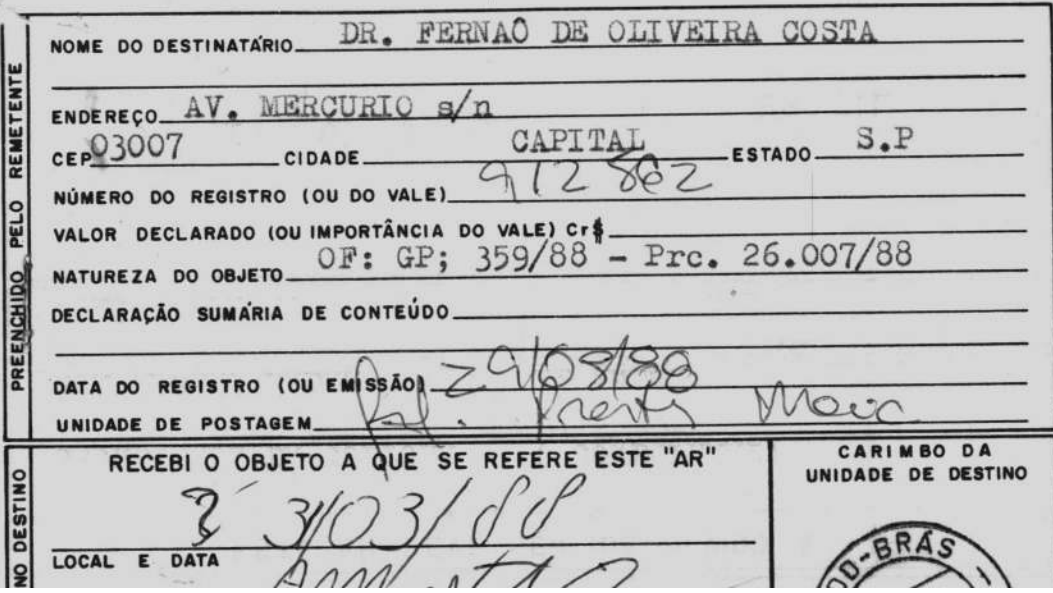 NOME DO DESTINATÁRIO DR. FERNAÔ DE OLIVEIRA COSTA
ENDEREÇO AV. MERCURIO s/n
CEP 03007 CIDADE CAPITAL ESTADO S.P
NÚMERO DO REGISTRO (OU DO VALE) 912 862
VALOR DECLARADO (OU IMPORTÂNCIA DO VALE) Cr$
NATUREZA DO OBJETO OF: GP; 359/88 - Prc. 26.007/88
DECLARAÇÃO SUMÁRIA DE CONTEÚDO
DATA DO REGISTRO (OU EMISSÃO) 29/08/88
UNIDADE DE POSTAGEM Prestes Maia
PREENCHIDO PELO REMETENTE
RECEBI O OBJETO A QUE SE REFERE ESTE "AR"
31/03/88
LOCAL E DATA
CARIMBO DA
UNIDADE DE DESTINO
BRÁS
NO DESTINO